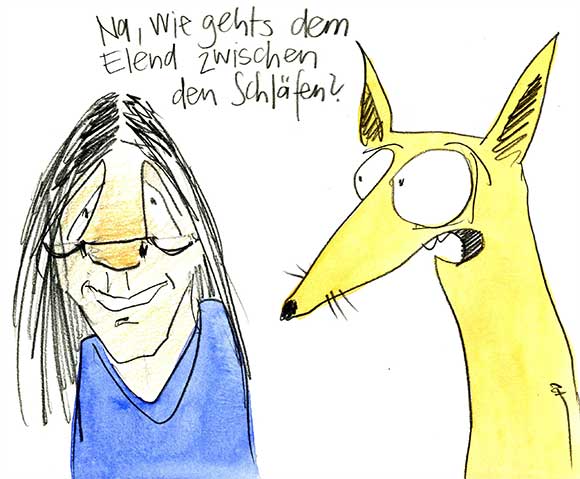 Na, wie gehts dem
Elend zwischen
den Schläfen?